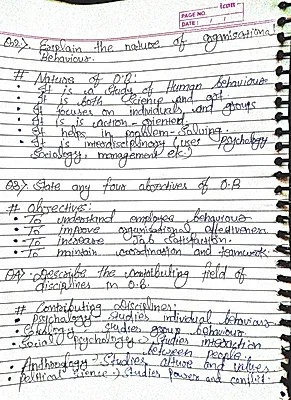 PAGE NO.
DATE: / /
Q2) Explain the nature of organisational
Behaviour.
# Nature of O.B:
• It is a study of Human behaviour
• It is both science and art.
• It focuses on individuals and groups
• It is is action-oriented.
• It helps in problem-solving.
• It is interdisciplinary (uses psychology
Sociology, management etc.)
Q3) State any four objectives of O.B
# Objectives:
• To understand employee behaviour
• To improve organisational effectiveness.
• To increase Job satisfaction.
• To maintain coordination and teamwork.
Q4) Describe the contributing field of
disciplines in O.B.
# Contributing Disciplines:
• Psychology: Studies individual behaviour
• Sociology: Studies group behaviour
• Social Psychology: Studies interaction
between people.
• Anthropology: Studies culture and values
• Political Science: Studies power and conflict.